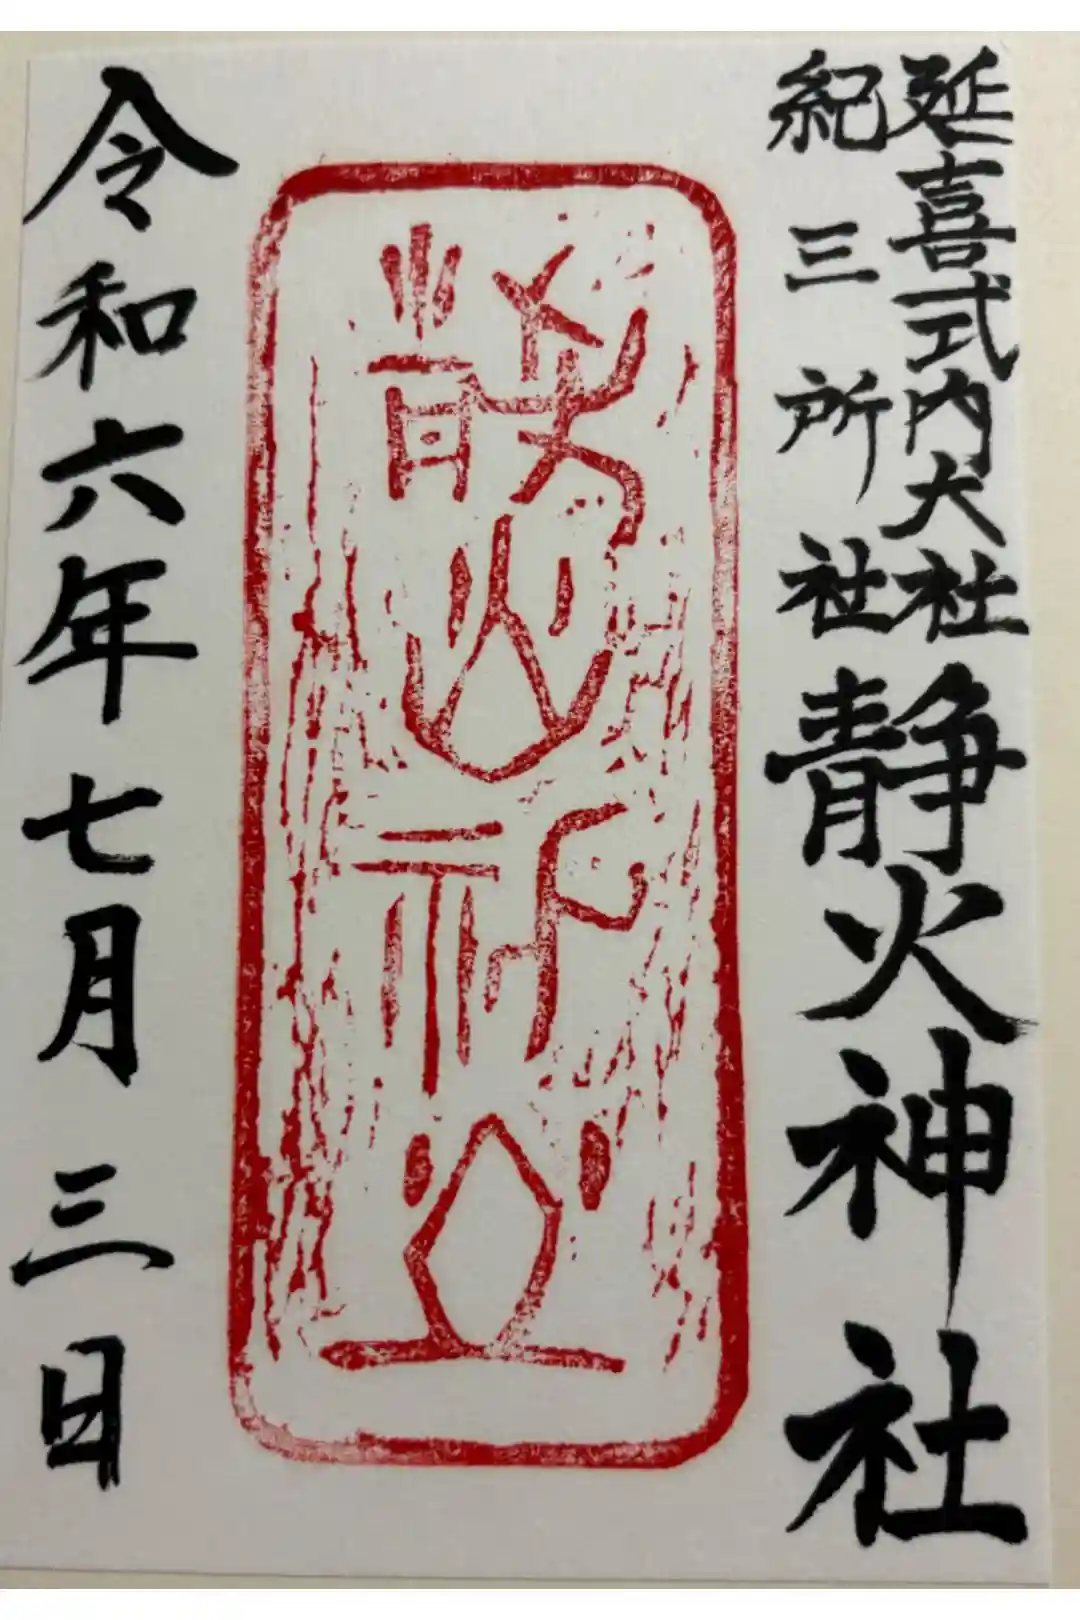 延喜式内大社
紀三所社
静火神社
令和六年七月三日